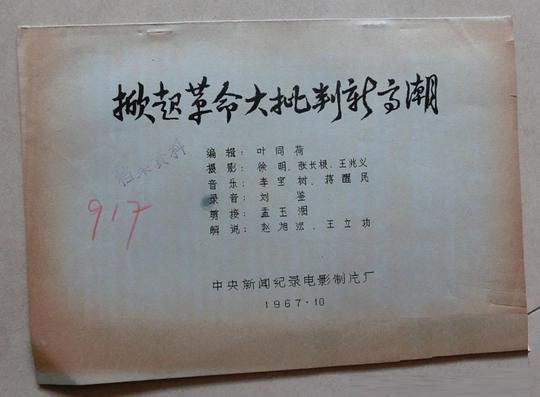 掀起革命大批判新高潮
编辑：叶同荷
摄影：徐明、张长根、王兆义
音乐：李宝树、蒋醒民
录音：刘鉴
剪接：孟玉湘
解说：赵旭澎、王立功
档案资料
917
中央新闻纪录电影制片厂
1967·10